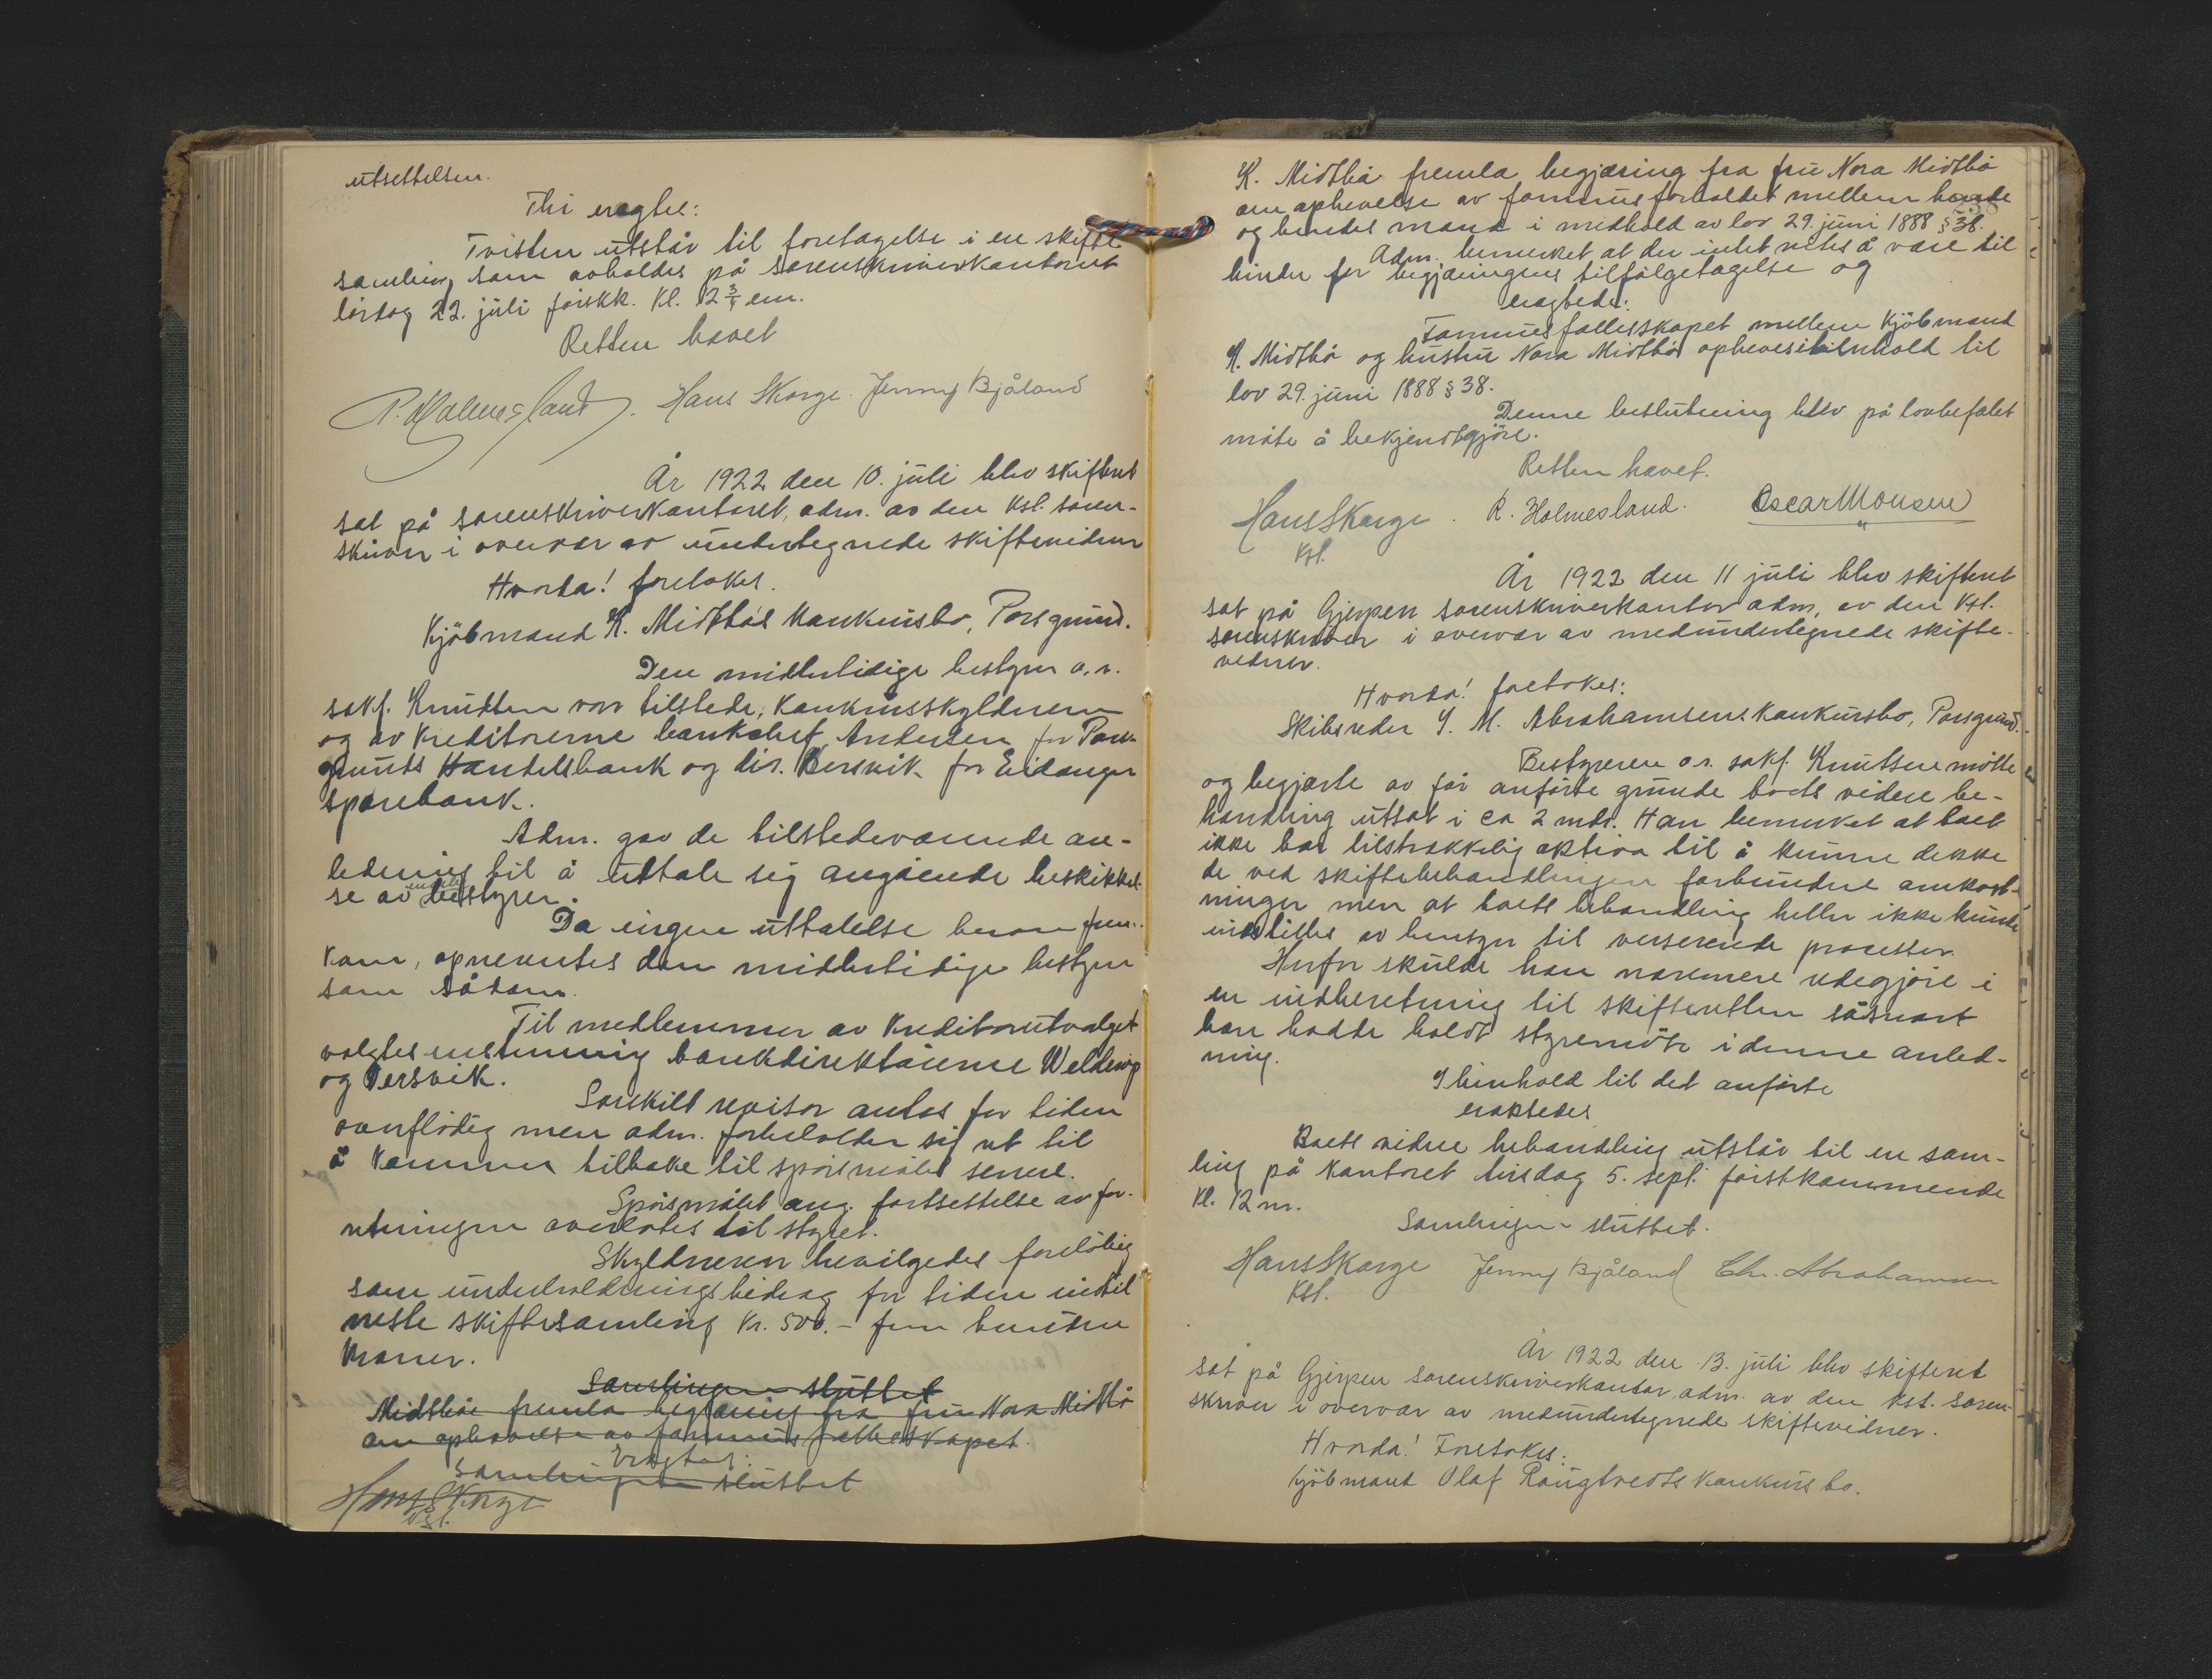 utsettelsen.
Thi eragtes:
Tvisten utstår til foretagelse i en skifte
samling som avholdes på sorenskriverkontoret
lørdag 22. juli førstkk. kl. 12 3/4 em.
Retten hævet
R. Holmesland. Hans Skorge. Jenny Bjåland
År 1922 den 10. juli blev skifteret
sat på sorenskriverkontoret, adm. av den kst. soren-
skriver i overvær av undertegnede skiftevidner
Hvorda! foretokes.
Kjøbmand K. Midtbøs konkursbo, Porsgrund.
Den midlertidige bestyrer o.r.
sakf. Knudtsen var tilstede, konkursskyldneren
og av kreditorerne bankchef Andersen for Pors-
grunds Handelsbank og dir. Versvik for Eidanger
sparebank.
Adm. gav de tilstedeværende an-
ledning til å uttale sig angående beskikkel-
se av endelig bestyrer.
Da ingen uttalelse herom frem-
kom, opnevntes den midlertidige bestyrer
som sådan.
Til medlemmer av kreditorutvalget
valgtes enstemmig bankdirektørerne Welding
og Versvik.
Særskilt revisor antas for tiden
overflødig men adm. forbeholder sig ret til
å komme tilbake til spørsmålet senere.
Spørsmålet ang. fortsettelse av for-
retningen overlates til styret.
Skyldneren bevilgedes foreløbig
som underholdningsbidrag for tiden indtil
neste skiftesamling kr. 500.- fem hundre
kroner.
Samlingen sluttet
Midtbø fremla begjæring fra fru Nora Midtbø
om ophævelse av formuesfællesskapet.
Eragtes:
Samlingen sluttet
Hans Skorge
kst.
K. Midtbø fremla begjæring fra fru Nora Midtbø
om ophevelse av formuesforholdet mellem hende
og hendes mand i medhold av lov 29. juni 1888 § 38.
Adm. bemerket at der intet vites å være til
hinder for begjæringens tilfølgetagelse og
eragtedes:
Formuesfællesskapet mellem kjøbmand
K. Midtbø og hustru Nora Midtbø ophæves i henhold til
lov 29. juni 1888 § 38.
Denne beslutning blev på lovbefalet
måte å bekjendtgjøre.
Retten hævet.
Hans Skorge. R. Holmesland. Oscar Monsen
kst.
År 1922 den 11 juli blev skifteret
sat på Gjerpen sorenskriverkontor adm. av den kst.
sorenskriver i overvær av medundertegnede skifte-
vidner.
Hvorda! foretokes:
Skibsreder I. M. Abrahamsens konkursbo, Porsgrund.
Bestyreren o.r. sakf. Knutsen møtte
og begjærte av før anførte grunde boets videre be-
handling utsat i ca 2 mdr. Han bemerket at boet
ikke har tilstrækkelig aktiva til å kunne dekke
de ved skiftebehandlingen forbundne omkost-
ninger men at boets behandling heller ikke kunde
indstilles av hensyn til verserende prosesser.
Herfor skulde han nærmere redegjøre i
en indberetning til skifteretten såsnart
han hadde holdt styremøte i denne anled-
ning.
I henhold til det anførte
eraktedes
Boets videre behandling utstår til en sam-
ling på kontoret tirsdag 5. sept. førstkommende
kl. 12 m.
Samlingen sluttet.
Hans Skorge Jenny Bjåland Chr. Abrahamsen
kst.
År 1922 den 13. juli blev skifteret
sat på Gjerpen sorenskriverkontor, adm. av den kst. soren-
skriver i overvær av medundertegnede skiftevidner.
Hvorda! Foretokes:
Kjøbmand Olaf Raugtvedts konkursbo.